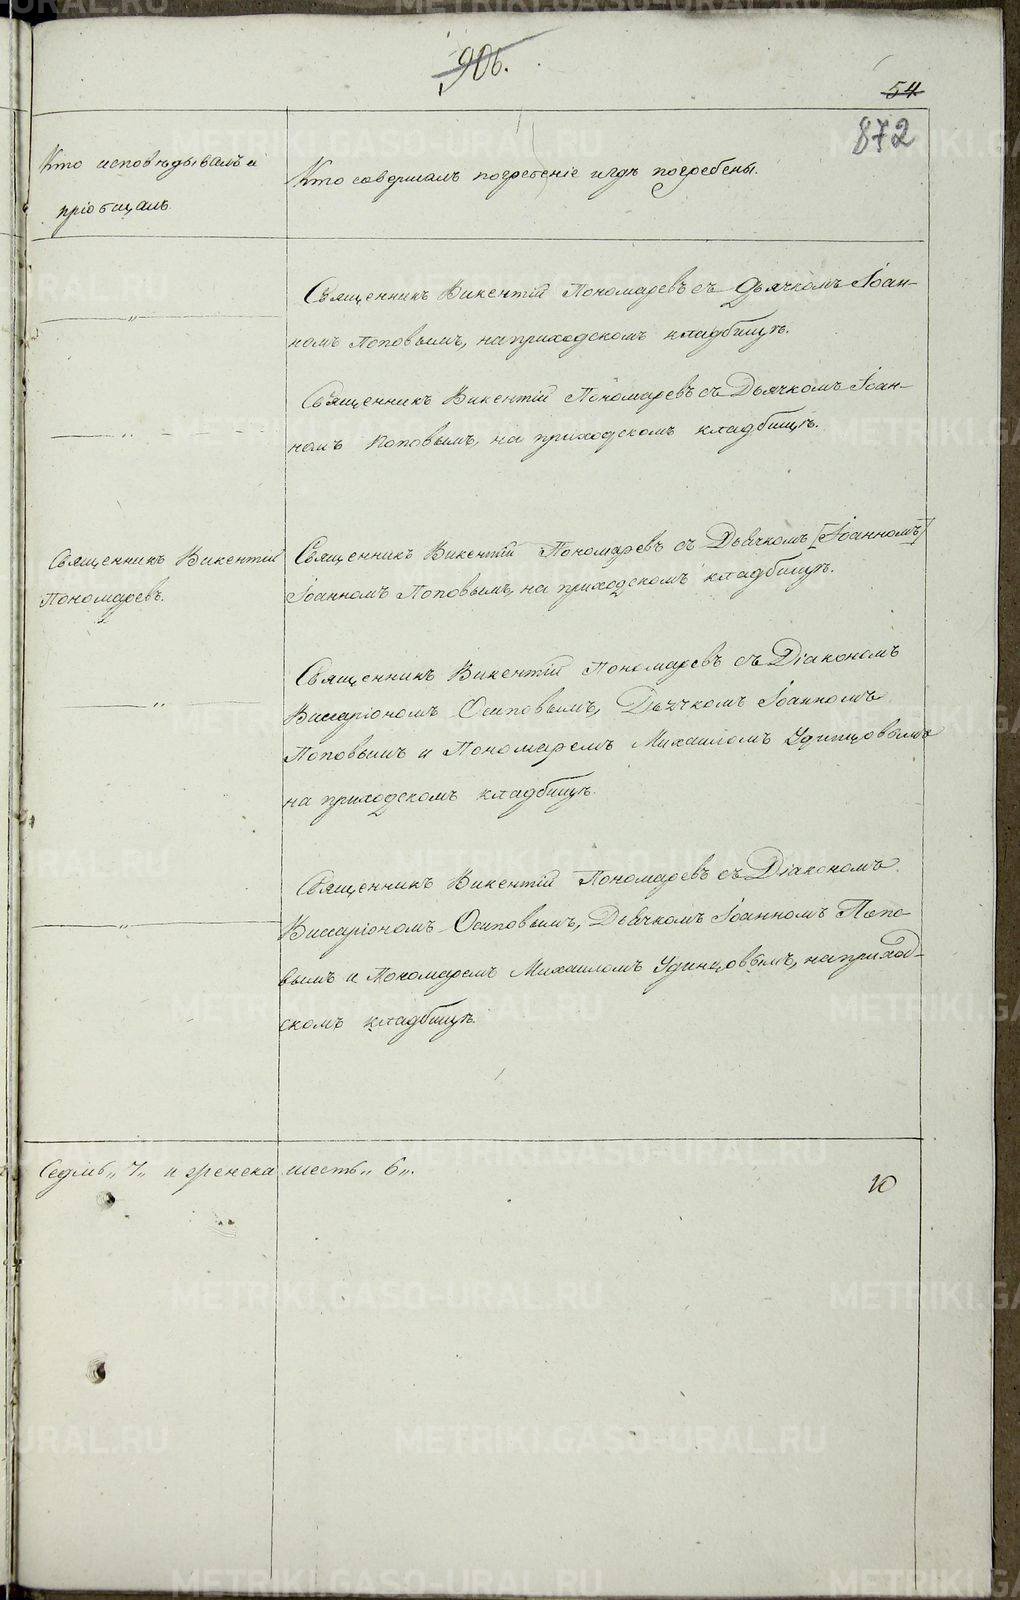 906.
54
872
Кто исповѣдывалъ и
пріобщалъ.
Кто совершалъ погребеніе и гдѣ погребены.
Священникъ Викентій Пономаревъ съ Дьячкомъ Іоан-
„
номъ Поповымъ, на приходскомъ кладбищѣ.
Священникъ Викентій Пономаревъ съ Дьячкомъ Іоан-
„
номъ Поповымъ, на приходскомъ кладбищѣ.
Священникъ Викентій
Пономаревъ.
Священникъ Викентій Пономаревъ съ Дьячкомъ [Іоанномъ]
Іоанномъ Поповымъ, на приходскомъ кладбищѣ.
Священникъ Викентій Пономаревъ съ Діакономъ
„
Виссаріономъ Осиповымъ, Дьячкомъ Іоанномъ
Поповымъ и Пономаремъ Михаиломъ Удинцовымъ
на приходскомъ кладбищѣ.
Священникъ Викентій Пономаревъ съ Діакономъ
„
Виссаріономъ Осиповымъ, Дьячкомъ Іоанномъ Попо-
вымъ и Пономаремъ Михаиломъ Удинцовымъ, на приход-
скомъ кладбищѣ.
Седмь „7„ и женска шесть „6„.
10
METRIKI.GASO-URAL.RU